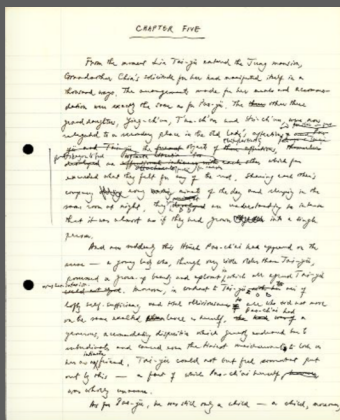 CHAPTER FIVE
From the moment Lin Tai-yü entered the Jung mansion,
Grandmother Chia's solicitude for her had manifested itself in a
thousand ways. The arrangements made for her meals and accommo-
dation were exactly the same as for Pao-yü. The other three
granddaughters, Ying-ch'un, T'an-ch'un and Hsi-ch'un, were now
relegated to a secondary place in the Old Lady's affections,
objects of
an which far
exceeded what they felt for any of the rest. Sharing each other's
company every minute of the day and sleeping in the
same room at night, they developed an understanding so intense
that it was almost as if they had grown into a single
person.
And now suddenly this Hsüeh Pao-ch'ai had appeared on the
scene – a young lady who, though very little older than Tai-yü,
possessed a grown-up beauty and aplomb in which all agreed Tai-yü
Moreover, in contrast to Tai-yü air of
lofty self-sufficiency and total obliviousness to all who did not move
on the same exalted level as herself, Pao-ch'ai had a
generous, accommodating disposition which greatly endeared her to
subordinates and caused even the lowliest maidservants to look on
her as a friend. Tai-yü could not but feel somewhat put
out by this – a fact of which Pao-ch'ai herself
was wholly unaware.
As for Pao-yü, he was still only a child – a child, moreover,